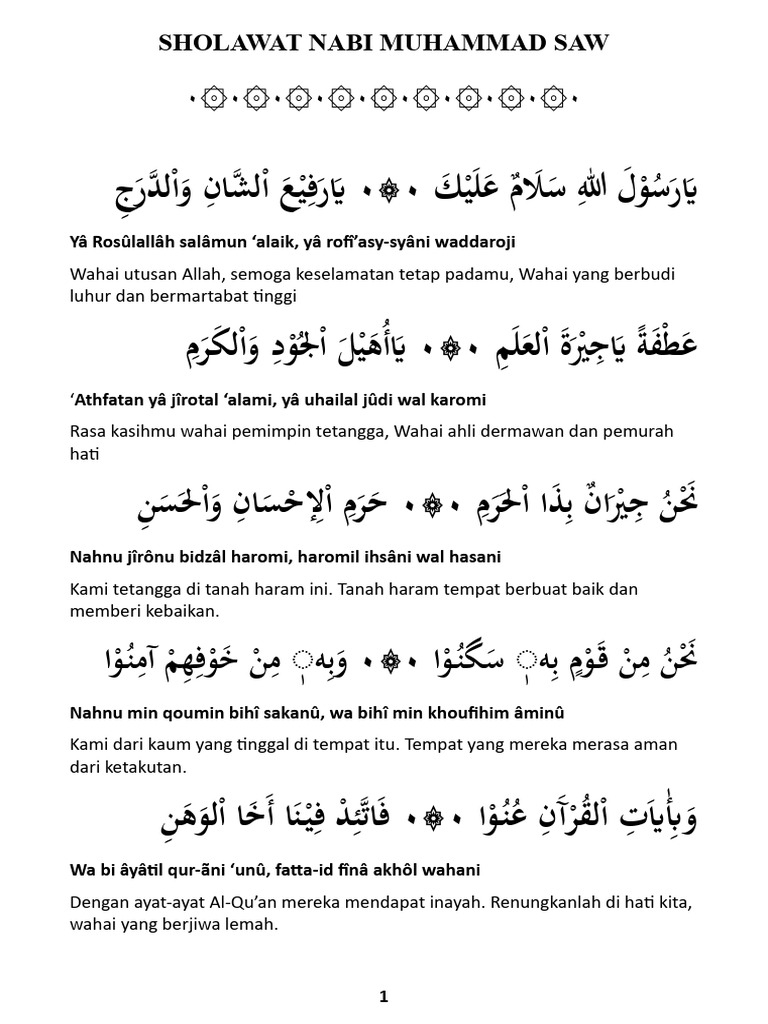 SHOLAWAT NABI MUHAMMAD SAW
يَارَسُوْلَ اللهِ سَلَامٌ عَلَيْكَ ۰۞۰ يَارَفِيْعَ اْلشَّانِ وَاْلدَّرَجِ
Yâ Rosûlallâh salâmun ‘alaik, yâ rofî’asy-syâni waddaroji
Wahai utusan Allah, semoga keselamatan tetap padamu, Wahai yang berbudi
luhur dan bermartabat tinggi
عَطْفَةً يَاجِيْرَةَ اْلعَلَمِ ۰۞۰ يَاأُهَيْلَ اْلجُوْدِ وَاْلكَرَمِ
‘Athfatan yâ jîrotal ‘alami, yâ uhailal jûdi wal karomi
Rasa kasihmu wahai pemimpin tetangga, Wahai ahli dermawan dan pemurah
hati
نَحْنُ جِيْرَانٌ بِذَا اْلحَرَمِ ۰۞۰ حَرَمِ اْلإِحْسَانِ وَاْلحَسَنِ
Nahnu jîrônu bidzâl haromi, haromil ihsâni wal hasani
Kami tetangga di tanah haram ini. Tanah haram tempat berbuat baik dan
memberi kebaikan.
نَحْنُ مِنْ قَوْمٍ بِهٖ سَكَنُوْا ۰۞۰ وَبِهٖ مِنْ خَوْفِهِمْ آمِنُوْا
Nahnu min qoumin bihî sakanû, wa bihî min khoufihim âminû
Kami dari kaum yang tinggal di tempat itu. Tempat yang mereka merasa aman
dari ketakutan.
وَبِأٰيَاتِ اْلقُرْآَنِ عُنُوْا ۰۞۰ فَاتَّئِدْ فِيْنَا أَخَا اْلوَهَنِ
Wa bi âyâtil qur-ãni ‘unû, fatta-id fînâ akhôl wahani
Dengan ayat-ayat Al-Qu’an mereka mendapat inayah. Renungkanlah di hati kita,
wahai yang berjiwa lemah.
1